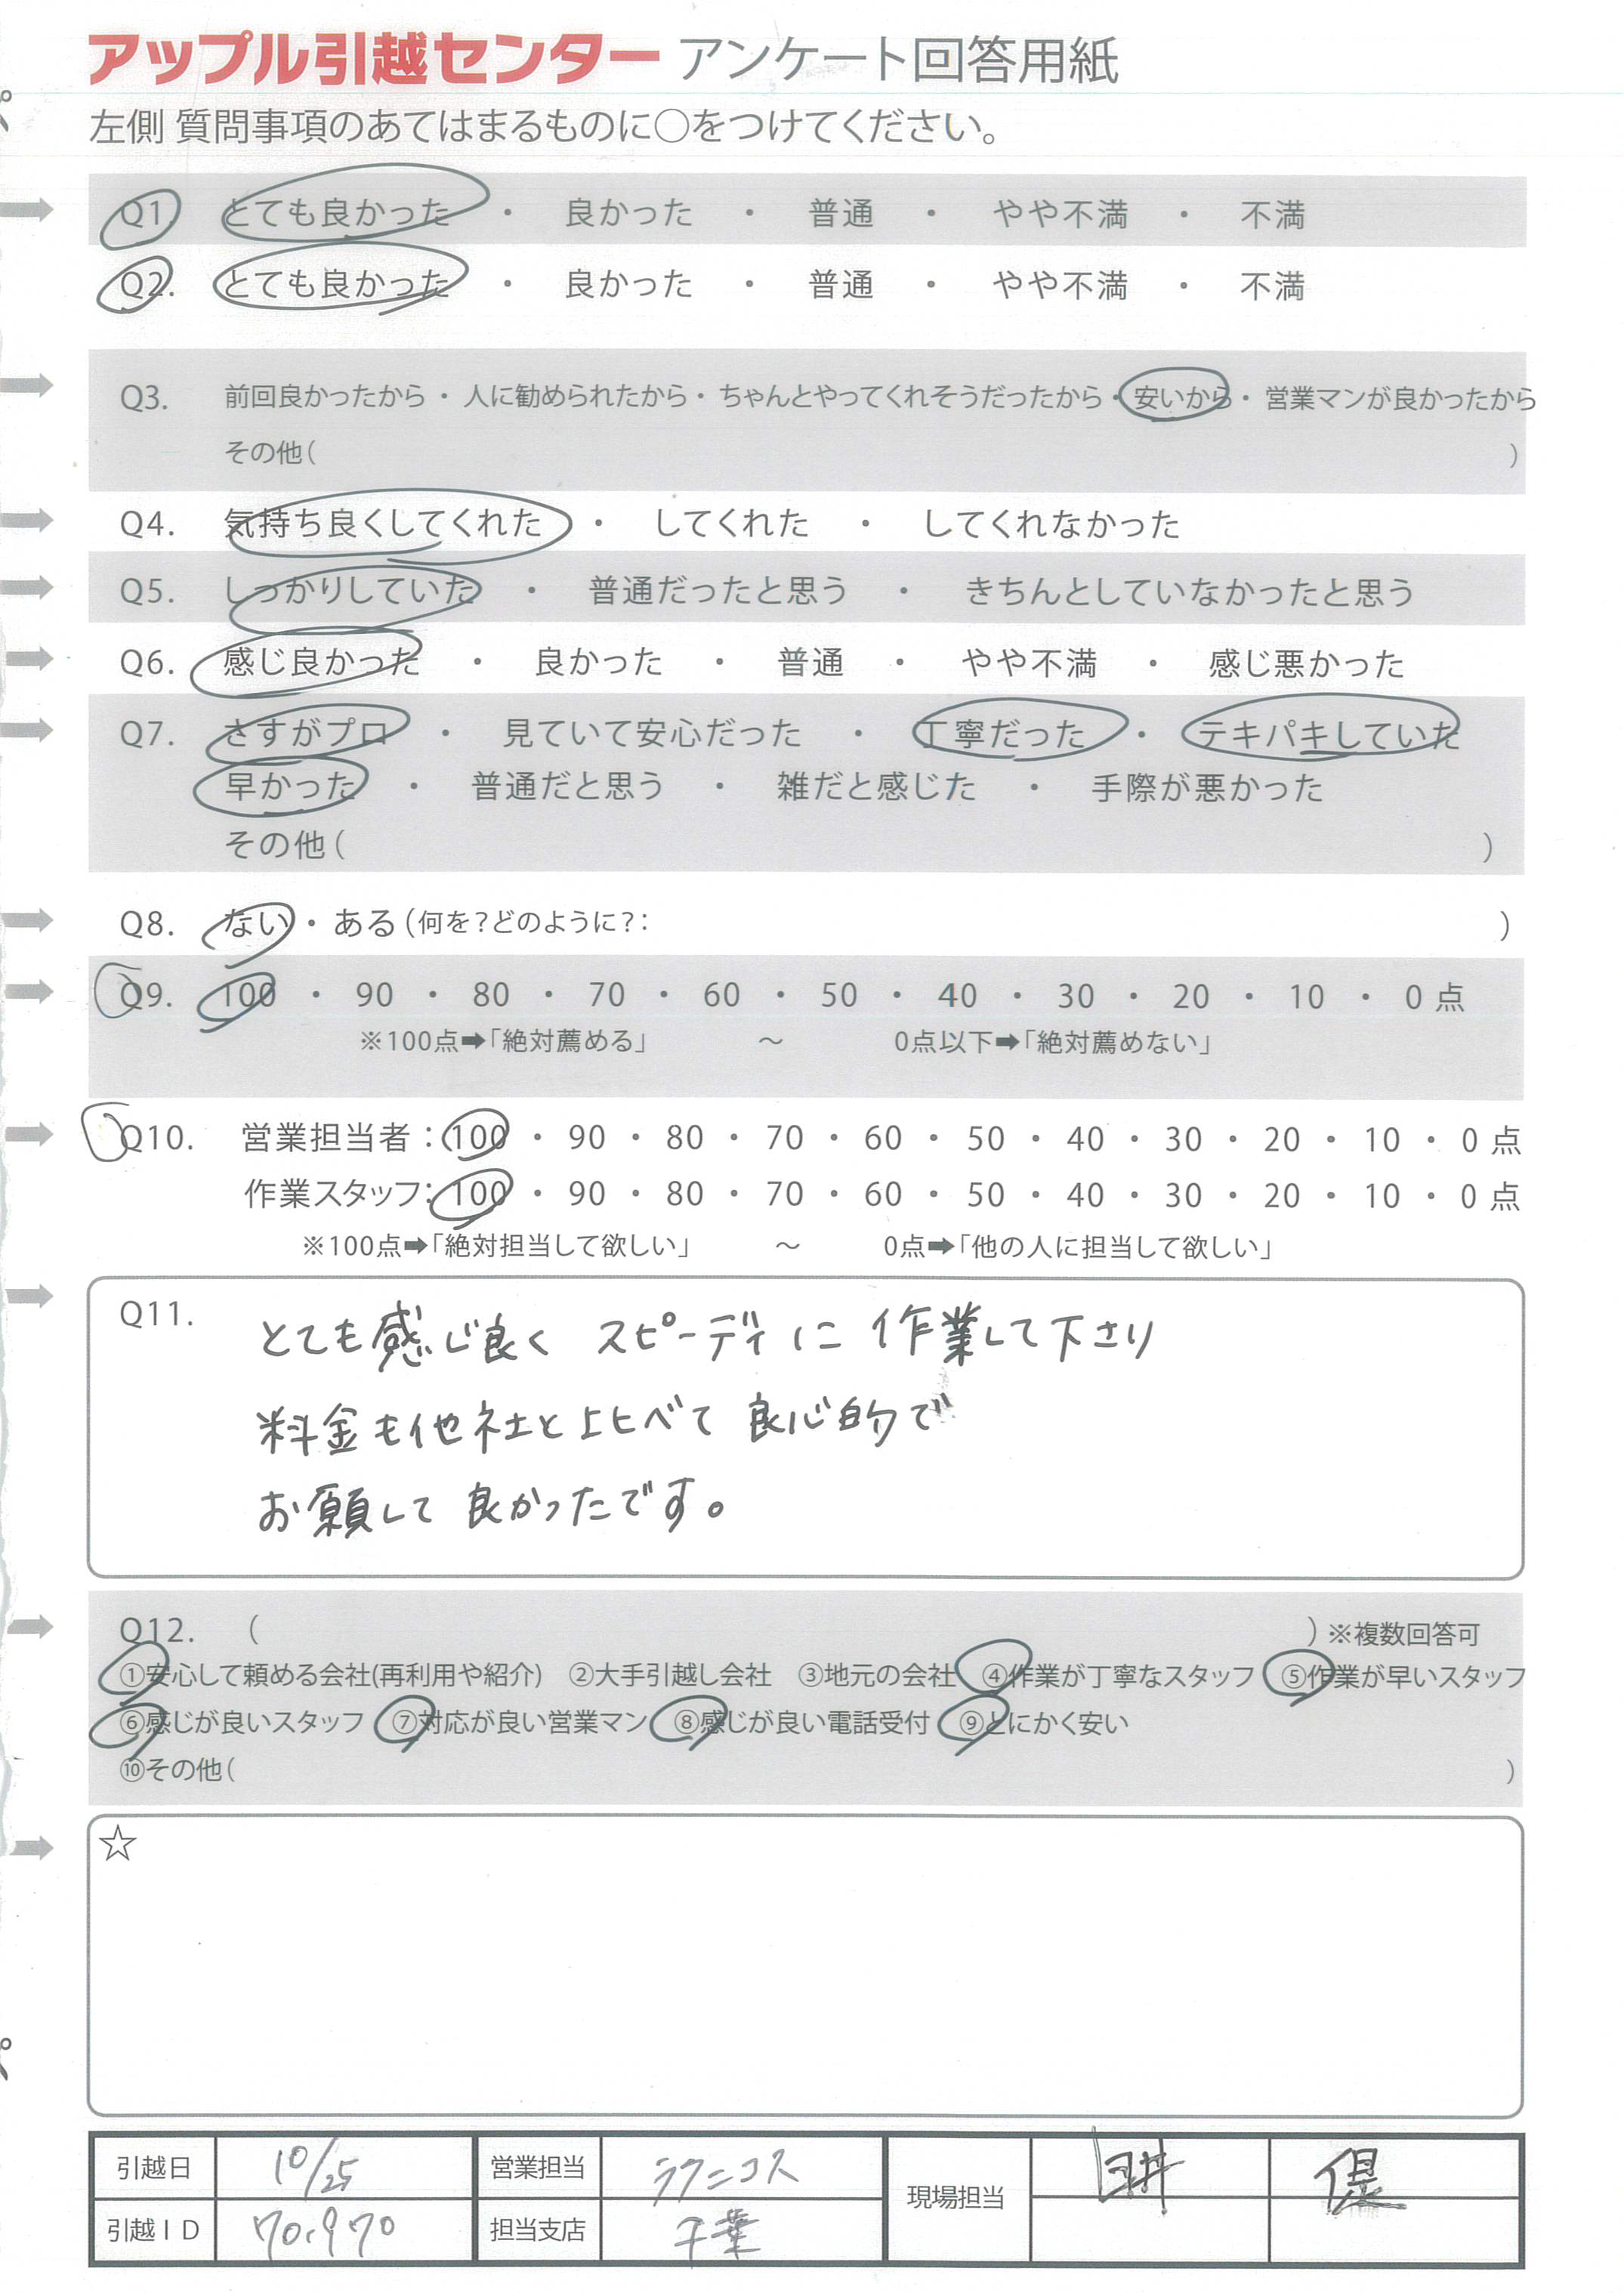 アップル引越センター アンケート回答用紙
左側 質問事項のあてはまるものに○をつけてください。
Q1 とても良かった ・ 良かった ・ 普通 ・ やや不満 ・ 不満
Q2. とても良かった ・ 良かった ・ 普通 ・ やや不満 ・ 不満
Q3. 前回良かったから・ 人に勧められたから・ ちゃんとやってくれそうだったから・ 安いから・ 営業マンが良かったから
その他( )
Q4. 気持ち良くしてくれた ・ してくれた ・ してくれなかった
Q5. しっかりしていた ・ 普通だったと思う ・ きちんとしていなかったと思う
Q6. 感じ良かった ・ 良かった ・ 普通 ・ やや不満 ・ 感じ悪かった
Q7. さすがプロ ・ 見ていて安心だった ・ 丁寧だった ・ テキパキしていた
早かった ・ 普通だと思う ・ 雑だと感じた ・ 手際が悪かった
その他( )
Q8. ない・ ある(何を?どのように?: )
Q9. 100 ・ 90 ・ 80 ・ 70 ・ 60 ・ 50 ・ 40 ・ 30 ・ 20 ・ 10 ・ 0 点
※100点➡「絶対薦める」 ～ 0点以下➡「絶対薦めない」
Q10. 営業担当者:100 ・ 90 ・ 80 ・ 70 ・ 60 ・ 50 ・ 40 ・ 30 ・ 20 ・ 10 ・ 0 点
作業スタッフ: 100 ・ 90 ・ 80 ・ 70 ・ 60 ・ 50 ・ 40 ・ 30 ・ 20 ・ 10 ・ 0 点
※100点➡「絶対担当して欲しい」 ～ 0点➡「他の人に担当して欲しい」
Q11. とても感じ良く スピーディに 作業して下さり
料金も他社と比べて 良心的で
お願して 良かったです。
Q12. ( ) ※複数回答可
①安心して頼める会社(再利用や紹介) ②大手引越し会社 ③地元の会社 ④作業が丁寧なスタッフ ⑤作業が早いスタッフ
⑥感じが良いスタッフ ⑦対応が良い営業マン ⑧感じが良い電話受付 ⑨とにかく安い
⑩その他( )
☆
引越日 10/25 営業担当 ラクニコス 現場担当
引越ID 担当支店 千葉